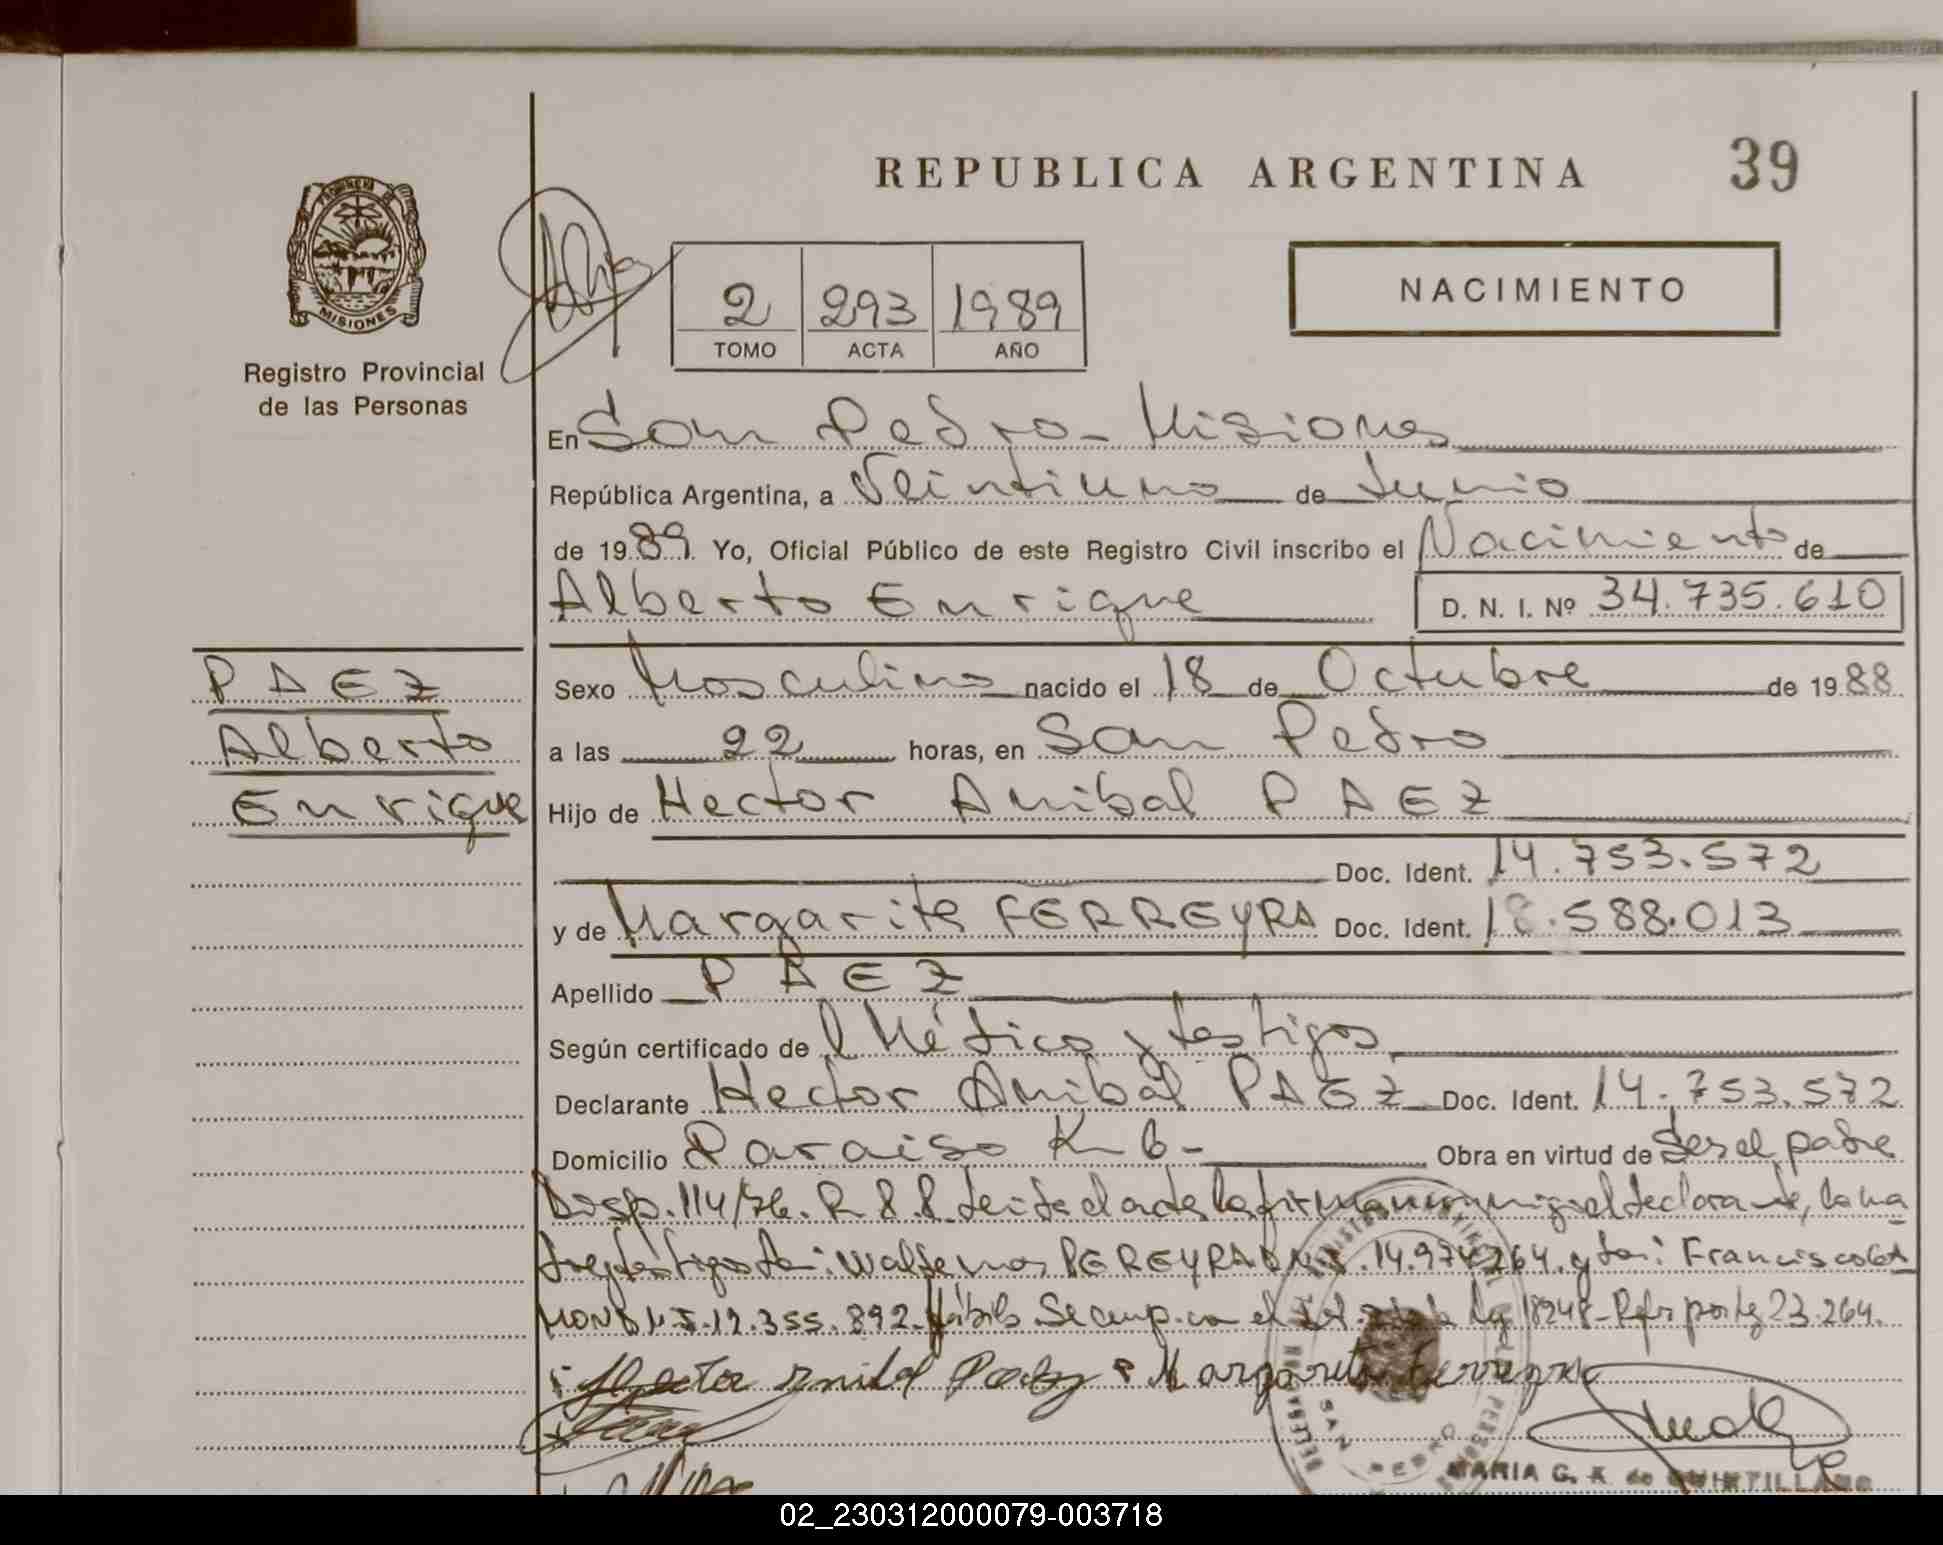 REPUBLICA ARGENTINA
39
PROVINCIA
MISIONES
Registro Provincial
de las Personas
2 293 1989
TOMO ACTA AÑO
NACIMIENTO
En San Pedro - Misiones
República Argentina, a Veintiuno de Junio
de 1989. Yo, Oficial Público de este Registro Civil inscribo el Nacimiento de
Alberto Enrique
D. N. I. Nº 34.735.610
PAEZ
Alberto
Enrique
Sexo Masculino nacido el 18 de Octubre de 1988
a las 22 horas, en San Pedro
Hijo de Hector Anibal PAEZ
Doc. Ident. 14.753.572
y de Margarita FERREYRA Doc. Ident. 18.588.013
Apellido PAEZ
Según certificado de l Médico y testigos
Declarante Hector Anibal PAEZ Doc. Ident. 14.753.572
Domicilio Paraiso Km 6- Obra en virtud de Ser el padre
Disp. 114/76. leida el acta la firman conmigo el declarante, la ma
dre testigos PEREYRA 14.974.264. y Francisco
12.355.892. Se cump. con el ley 18248- 23.264.
Margarita Ferreyra
SAN PEDRO
MARIA G. K. de QUINTILLANO
02_230312000079-003718